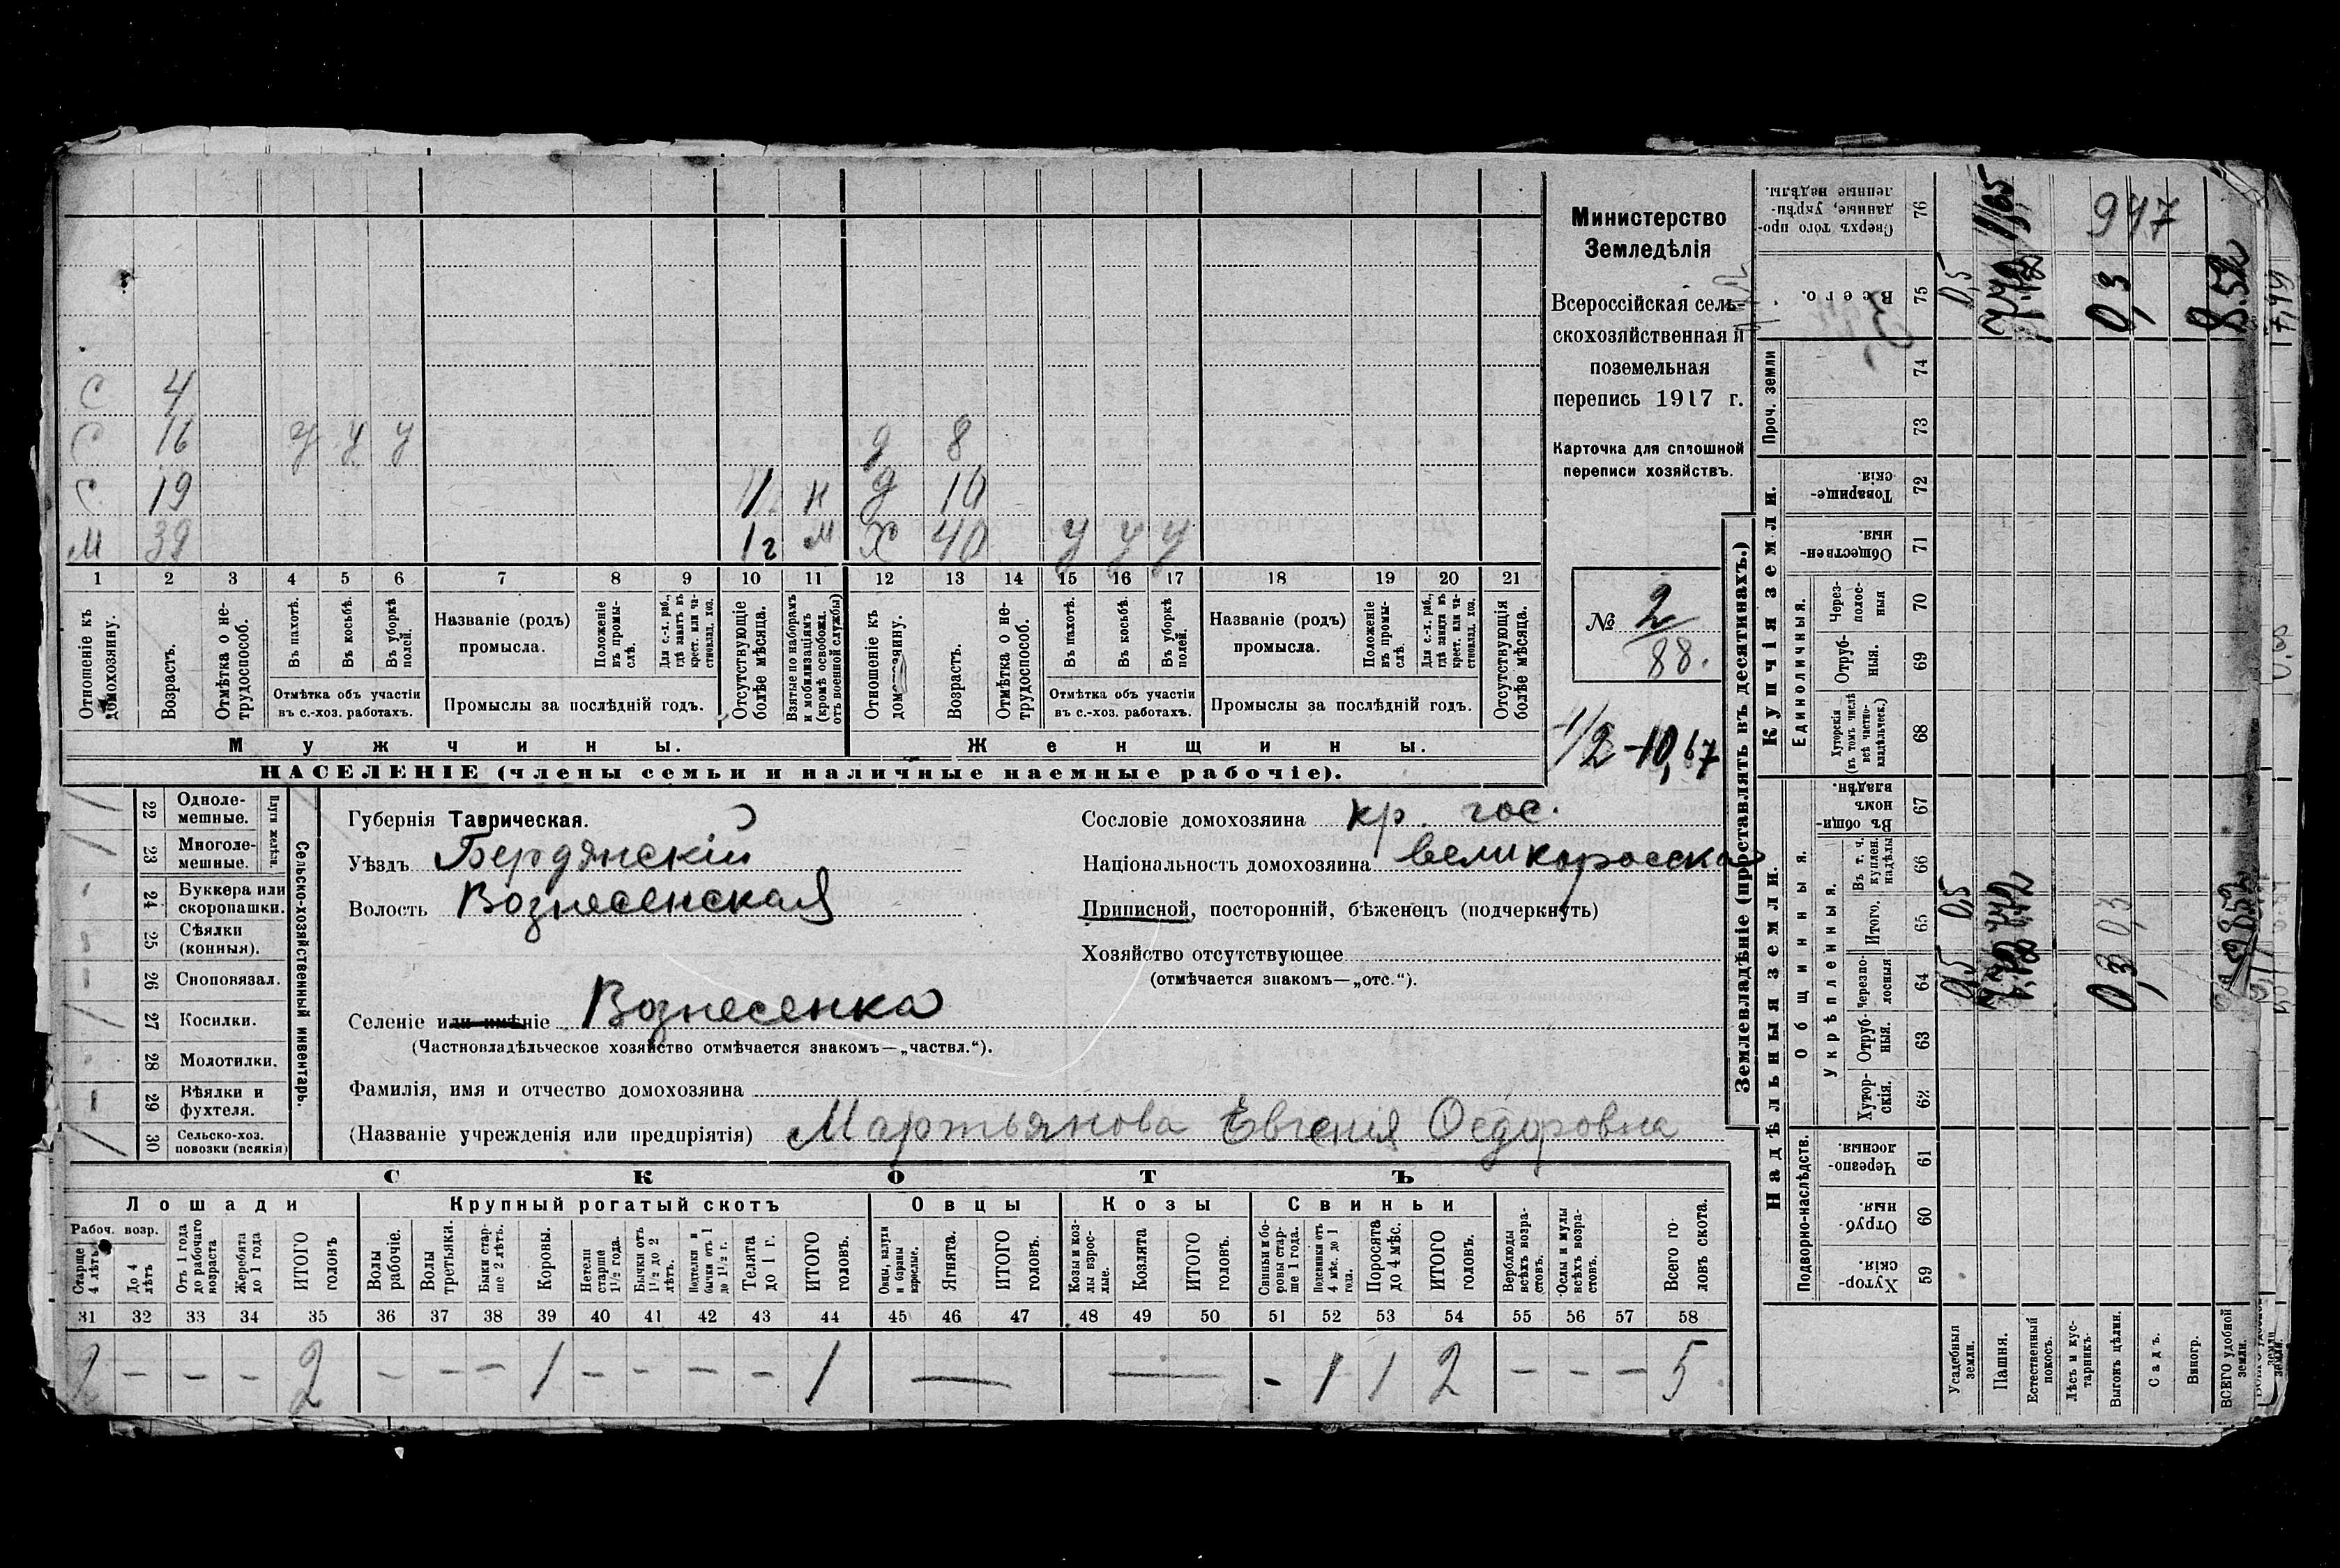 С 4
С 16 у у у д 8
С 19 н д 10
М 39 1 г м Х 40 у у у
1 2 3 4 5 6 7 8 9 10 11 12 13 14 15 16 17 18 19 20 21
Отношеніе къ домохозяину.
Возрастъ.
Отмѣтка о нетрудоспособ.
Въ пахотѣ.
Въ косьбѣ.
Въ уборкѣ полей.
Отмѣтка объ участіи
въ с.-хоз. работахъ.
Названіе (родъ)
промысла.
Положеніе въ промыслѣ.
Для с.-х. раб., гдѣ занятъ въ крест. или частновлад. хоз.
Промыслы за послѣдній годъ.
Отсутствующіе болѣе мѣсяца.
Взятые по наборамъ и мобилизаціямъ (кромѣ освобожд. отъ военной службы)
Отношеніе къ домохозяину.
Возрастъ.
Отмѣтка о нетрудоспособ.
Въ пахотѣ.
Въ косьбѣ.
Въ уборкѣ полей.
Отмѣтка объ участіи
въ с.-хоз. работахъ.
Названіе (родъ)
промысла.
Положеніе въ промыслѣ.
Для с.-х. раб., гдѣ занята въ крест. или частновлад. хоз.
Промыслы за послѣдній годъ.
Отсутствующія болѣе мѣсяца.
Мужчины. Женщины.
НАСЕЛЕНІЕ (члены семьи и наличные наемные рабочіе).
Министерство
Земледѣлія
Всероссійская сель-
скохозяйственная и
поземельная
перепись 1917 г.
Карточка для сплошной
переписи хозяйствъ.
№ 2
88.
1/2 - 10,67
Сельско-хозяйственный инвентарь.
Плуги желѣзн.
22 Однолемешные.
23 Многолемешные.
24 Буккера или скоропашки.
25 Сѣялки (конныя).
26 Сноповязал.
27 Косилки.
28 Молотилки.
29 Вѣялки и фухтеля.
30 Сельско-хоз. повозки (всякія)
Губернія Таврическая.
Уѣздъ Бердянскій
Волость Вознесенская
Селеніе или имѣніе Вознесенка
(Частновладѣльческое хозяйство отмѣчается знакомъ—„частвл.“).
Фамилія, имя и отчество домохозяина
(Названіе учрежденія или предпріятія) Мартьянова Евгенія Ѳедоровна
Сословіе домохозяина кр. гос.
Національность домохозяина великоросска
Приписной, посторонній, бѣженецъ (подчеркнуть)
Хозяйство отсутствующее
(отмѣчается знакомъ—„отс.“).
СКОТЪ
Лошади Крупный рогатый скотъ Овцы Козы Свиньи
Рабоч. возр.
Старше 4 лѣтъ
До 4 лѣтъ
Отъ 1 года до рабочаго возраста
Жеребята до 1 года
ИТОГО головъ.
Волы рабочіе.
Волы третьяки.
Быки старше 2 лѣтъ.
Коровы.
Нетели старше 1½ года.
Бычки отъ 1½ до 2 лѣтъ.
Подтелки и бычки отъ 1 до 1½ г.
Телята до 1 г.
ИТОГО головъ.
Овцы, валухи и бараны взрослые.
Ягнята.
ИТОГО головъ.
Козы и козлы взрослые.
Козлята
ИТОГО головъ.
Свиньи и боровы старше 1 года.
Подсвинки отъ 4 мѣс. до 1 года.
Поросята до 4 мѣс.
ИТОГО головъ.
Верблюды всѣхъ возрастовъ.
Ослы и мулы всѣхъ возрастовъ.
Всего головъ скота.
31 32 33 34 35 36 37 38 39 40 41 42 43 44 45 46 47 48 49 50 51 52 53 54 55 56 57 58
2 - - - 2 - - - 1 - - - - 1 — — - 1 1 2 - - - 5
Землевладѣніе (проставлять въ десятинахъ.)
Купчія земли.
Надѣльныя земли.
Сверхъ того проданные, укрѣпленные надѣлы. 76 947
Всего. 75 0,5 0,3
Проч. земли 74
73
Товарищескія 72
Общественныя 71
Единоличныя.
Черезполосныя 70
Отрубныя. 69
Хуторскія (въ томъ числѣ всѣ частновладѣльческ.) 68
Общинныя.
Въ общинномъ владѣн. 67
Укрѣпленныя.
Въ т. ч. куплен. надѣлы 66
Итого. 65 0,5 0,3
Черезполосныя 64 0,5 0,3
Отрубныя. 63
Хуторскія. 62
Подворно-наслѣдств.
Черезполосныя 61
Отрубныя 60
Хуторскія. 59
Усадебныя земли.
Пашня.
Естественный покосъ.
Лѣсъ и кустарникъ.
Выгонъ цѣлин.
Садъ.
Виногр.
ВСЕГО удобной земли.